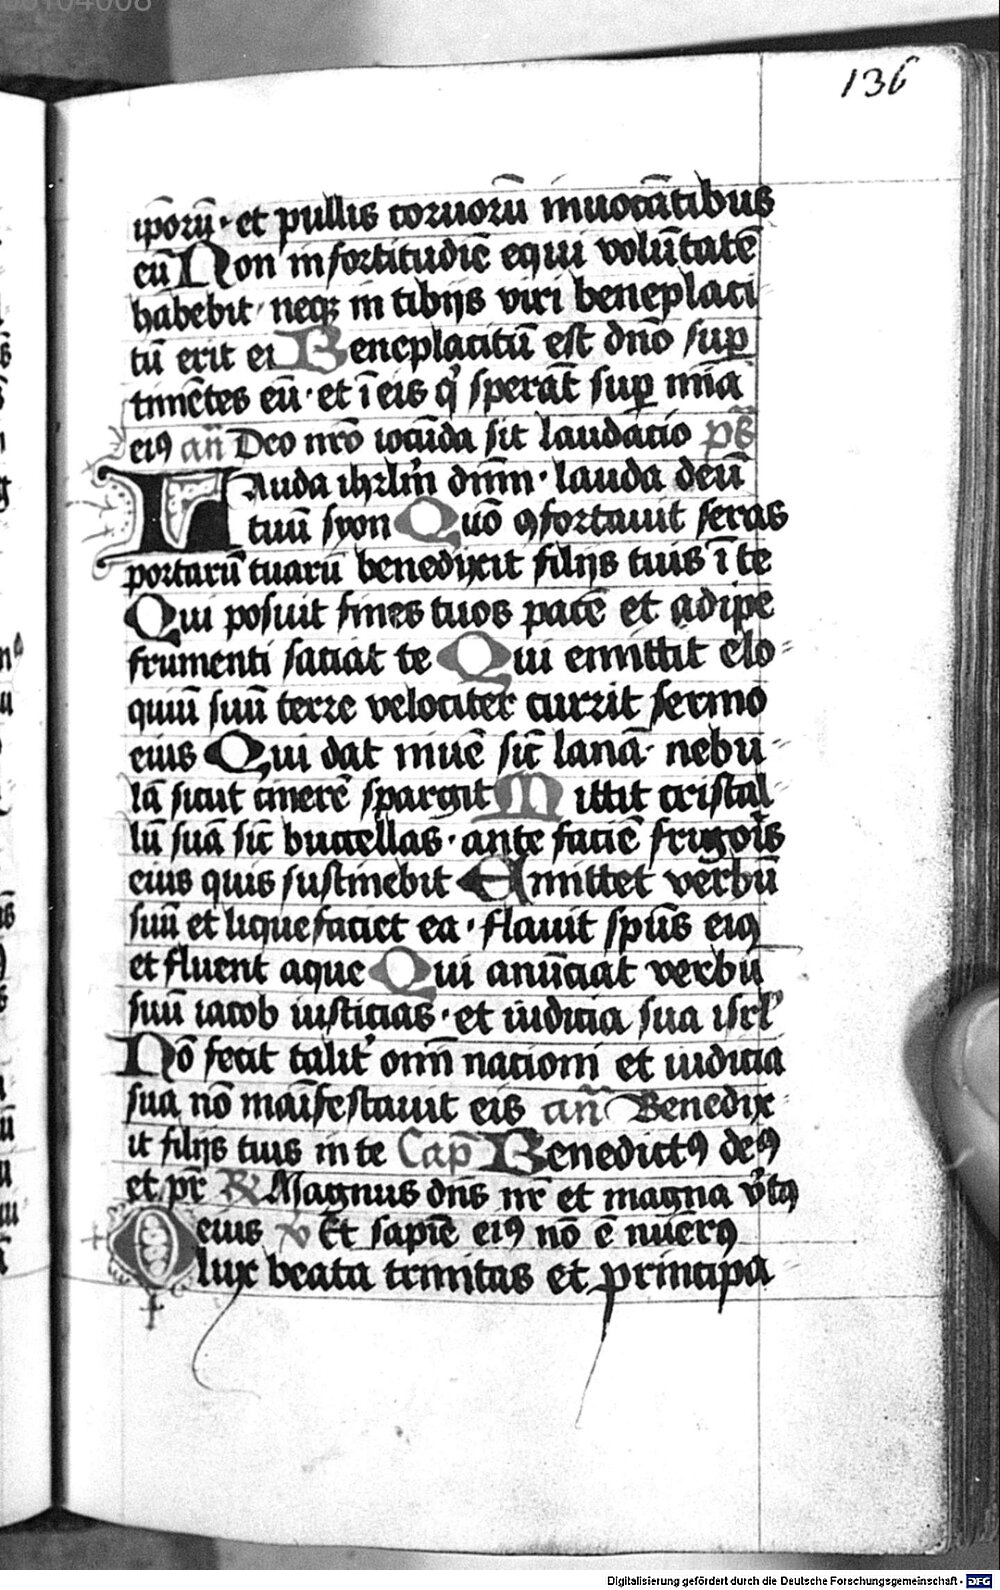 136
ip̄orū · et pullis coruorū inuocātibus
eū Non in fortitudīe equi volūtatē
habebit · neqꝫ in tibijs viri beneplaci
tū erit ei Beneplacitū est dn̄o suꝑ
timētes eū · et ī eis qͥ sperāt suꝑ mīa
eiꝰ an̄ Deo nr̄o iocūda sit laudacio ps̄
Lauda ihrlm̄ dn̄m · lauda deū
tuū syon Quō ꝯfortauit seras
portarū tuarū benedixit filijs tuis ī te
Qui posuit fines tuos pacē et adipe
frumenti saciat te Qui emittit elo-
quiū suū terre velociter currit sermo
eius Qui dat niuē sic̄ lanā · nebu-
lā sicut cinerē spargit Mittit cristal-
lū suā sic̄ bucellas · ante faciē frigoīs
eius quis sustinebit Emittet verbū
suū et liquefaciet ea · flauit spūs eiꝰ
et fluent aque Qui anūciat verbū
suū iacob iusticias · et iudicia sua isrl'
Nō fecit talit' om̄i nacioni et iudicia
sua nō māifestauit eis an̄ Benedix-
it filijs tuis in te Cap̄ Benedictꝰ deꝰ
et pr̄ R Magnus dn̄s nr̄ et magna v̓tꝰ
eius v Et sapiē eiꝰ nō ē nuērꝰ
O lux beata trinitas et principa
Digitalisierung gefördert durch die Deutsche Forschungsgemeinschaft - DFG